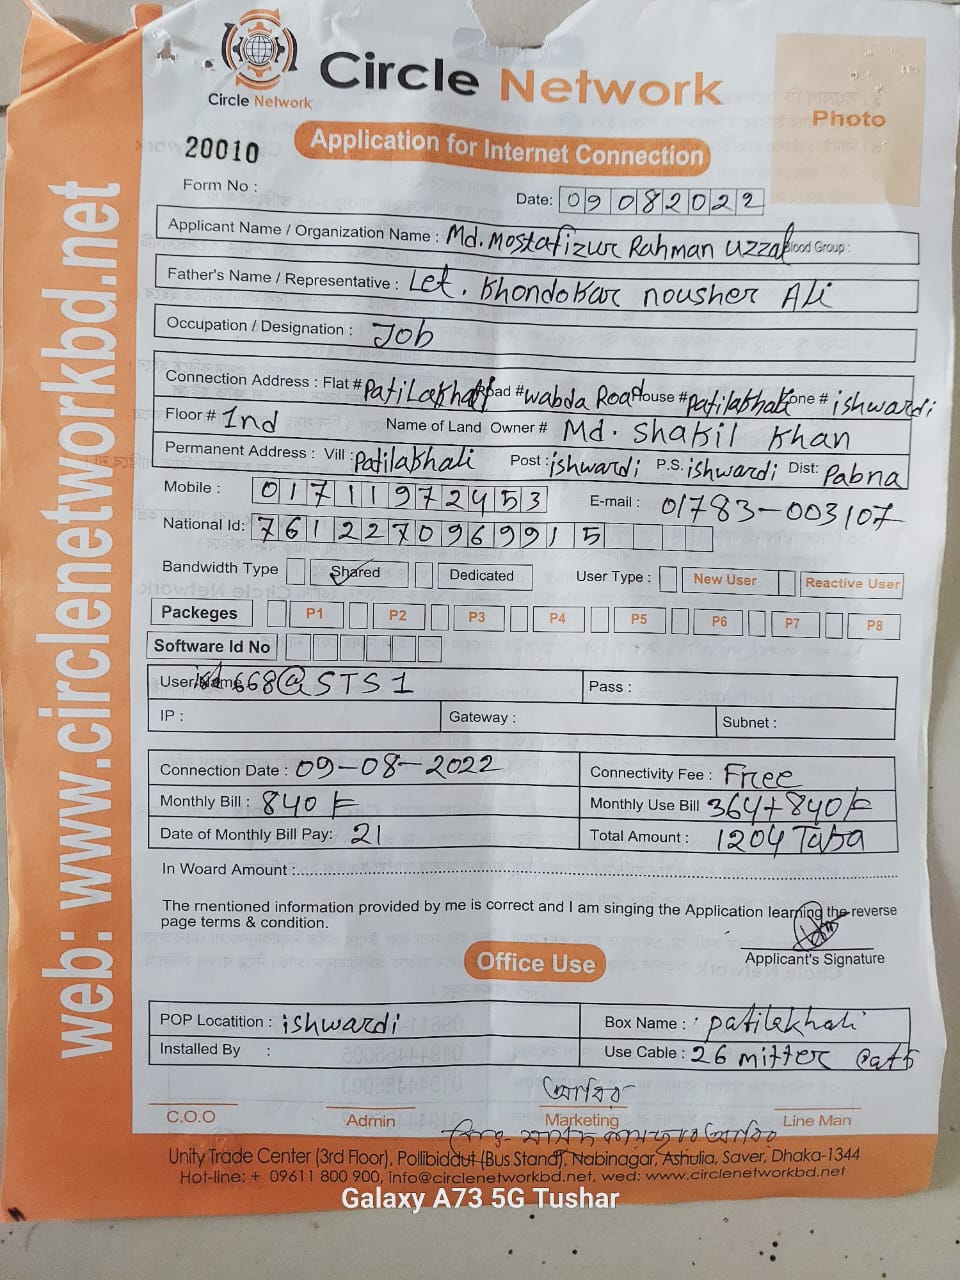 Circle Network
Circle Network
Photo
20010
Application for Internet Connection
Form No :
Date: 09082022
Applicant Name / Organization Name : Md. Mostafizur Rahman Uzzal Blood Group :
Father's Name / Representative : Let. Khondokar nousher Ali
Occupation / Designation : Job
Connection Address : Flat # Patilakhali Road # Wabda Road House # Patilakhali Zone # ishwardi
Floor # 1nd Name of Land Owner # Md. Shakil Khan
Permanent Address : Vill : Patilakhali Post : ishwardi P.S. ishwardi Dist: Pabna
Mobile : 01711972453 E-mail : 01783-003107
National Id: 7612270969915
Bandwidth Type Shared Dedicated User Type : New User Reactive User
Packeges P1 P2 P3 P4 P5 P6 P7 P8
Software Id No
User Name 668@STS1 Pass :
IP : Gateway : Subnet :
Connection Date : 09-08-2022 Connectivity Fee : Free
Monthly Bill : 840 Monthly Use Bill 364+840
Date of Monthly Bill Pay: 21 Total Amount : 1204 Taka
In Woard Amount :
The mentioned information provided by me is correct and I am singing the Application learning the reverse
page terms & condition.
Applicant's Signature
Office Use
POP Locatition : ishwardi Box Name : patilakhali
Installed By : Use Cable : 26 mitter cat5
C.O.O Admin Marketing Line Man
Unity Trade Center (3rd Floor), Pollibiddut (Bus Stand), Nabinagar, Ashulia, Saver, Dhaka-1344
Hot-line: + 09611 800 900, info@circlenetworkbd.net, wed: www.circlenetworkbd.net
web: www.circlenetworkbd.net
Galaxy A73 5G Tushar